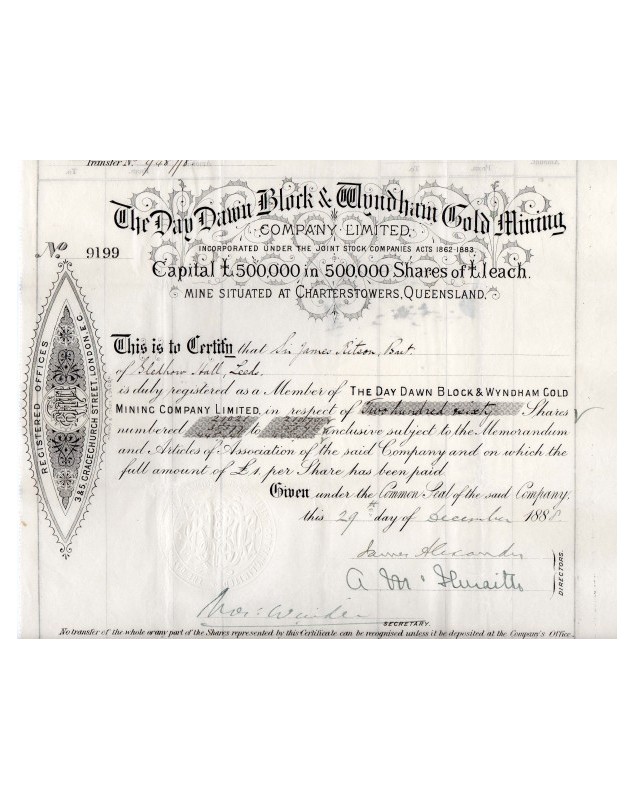 Transfer No. 948/78
The Day Dawn Block & Wyndham Gold Mining
COMPANY LIMITED.
INCORPORATED UNDER THE JOINT STOCK COMPANIES ACTS 1862-1883.
No. 9199
Capital £500,000 in 500,000 Shares of £1 each.
MINE SITUATED AT CHARTERSTOWERS, QUEENSLAND.
REGISTERED OFFICES
3 & 5 GRACECHURCH STREET, LONDON, E.C.
This is to Certify that Sir James Kitson Bart.
of Hall, Leeds.
is duly registered as a Member of THE DAY DAWN BLOCK & WYNDHAM GOLD
MINING COMPANY LIMITED, in respect of Two hundred Shares
numbered to inclusive subject to the Memorandum
and Articles of Association of the said Company and on which the
full amount of £1. per Share has been paid
Given under the Common Seal of the said Company.
this 29th day of December 1888.
James Alexander
A Mc
DIRECTORS.
SECRETARY.
No transfer of the whole or any part of the Shares represented by this Certificate can be recognised unless it be deposited at the Company's Office.